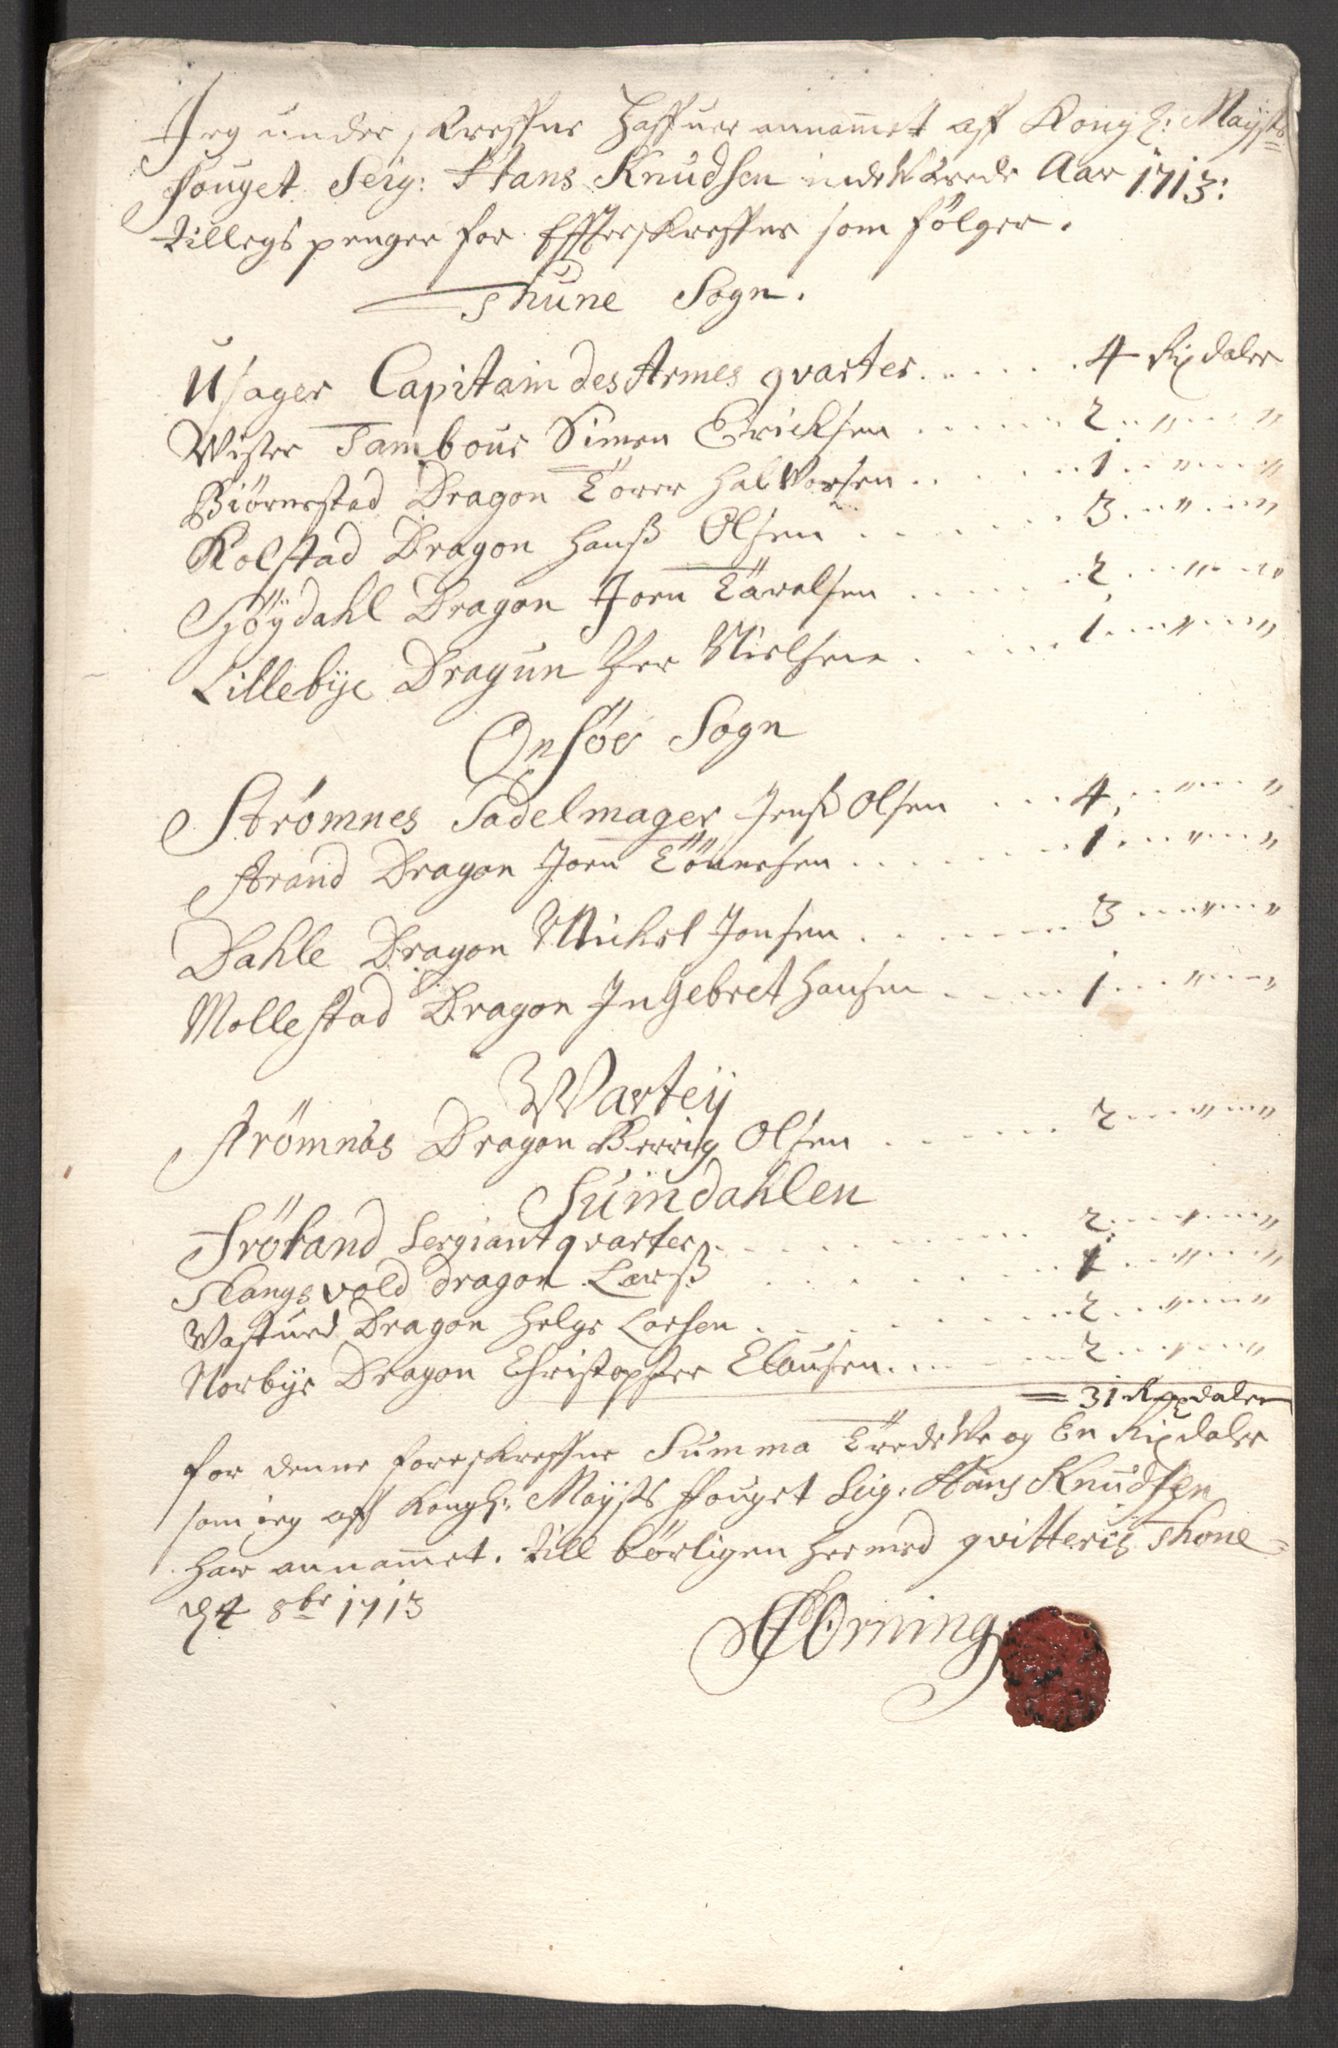 Jeg under skrefne Haffuer annammet aff Kongl: Mayts
fouget Seig: Hans Knudsen inde Werede Aar 1713:
tillegs penger for Effterskrefne som følger.
Thune Sogn.
Usager Capitain des Armes qvarter . . . . . . 4 Rixdaler
Wister Tambour Simen Ericksen . . . . . . 2 " "
Biørnestad Dragon Torer Halvorsen . . . . 1 " "
Kolstad Dragon Hanß Olsen . . . . . . 3 " "
Høydahl Dragon Joen Taralsen . . . . . 2 " "
Lillebye Dragun Per Nielsen . . . . . 1 " "
Onsøe Sogn
Strømnes Sadelmager Jenß Olsen . . . 4 " "
Strand Dragon Joen Tönnesen . . . . . 1 " "
Dahle Dragon Michel Jonsen . . . . . 3 " "
Mollestad Dragon Ingebret Hansen . . . . 1 " "
Warteij
Strømnes Dragon Olsen . . . . . 2 " "
Suindahlen
Frøland Sergiant qvarter . . . . . . 2 " "
Slangsvold dragon Larß . . . . . . 1 " "
Dragon Helge Larsen . . . . . . 2 " "
Norbye Dragon Christopher Clausen . . . . 2 " "
= 31 Rixdaler
for denne foreskrefne Summa Tredeve og En Rixdaler
som jeg aff Kongl: Mayts fouget Seig. Hans Knudsen
har annammet. till børligen hermed qvitteris Thone
d 4 8br 1713
Hørning